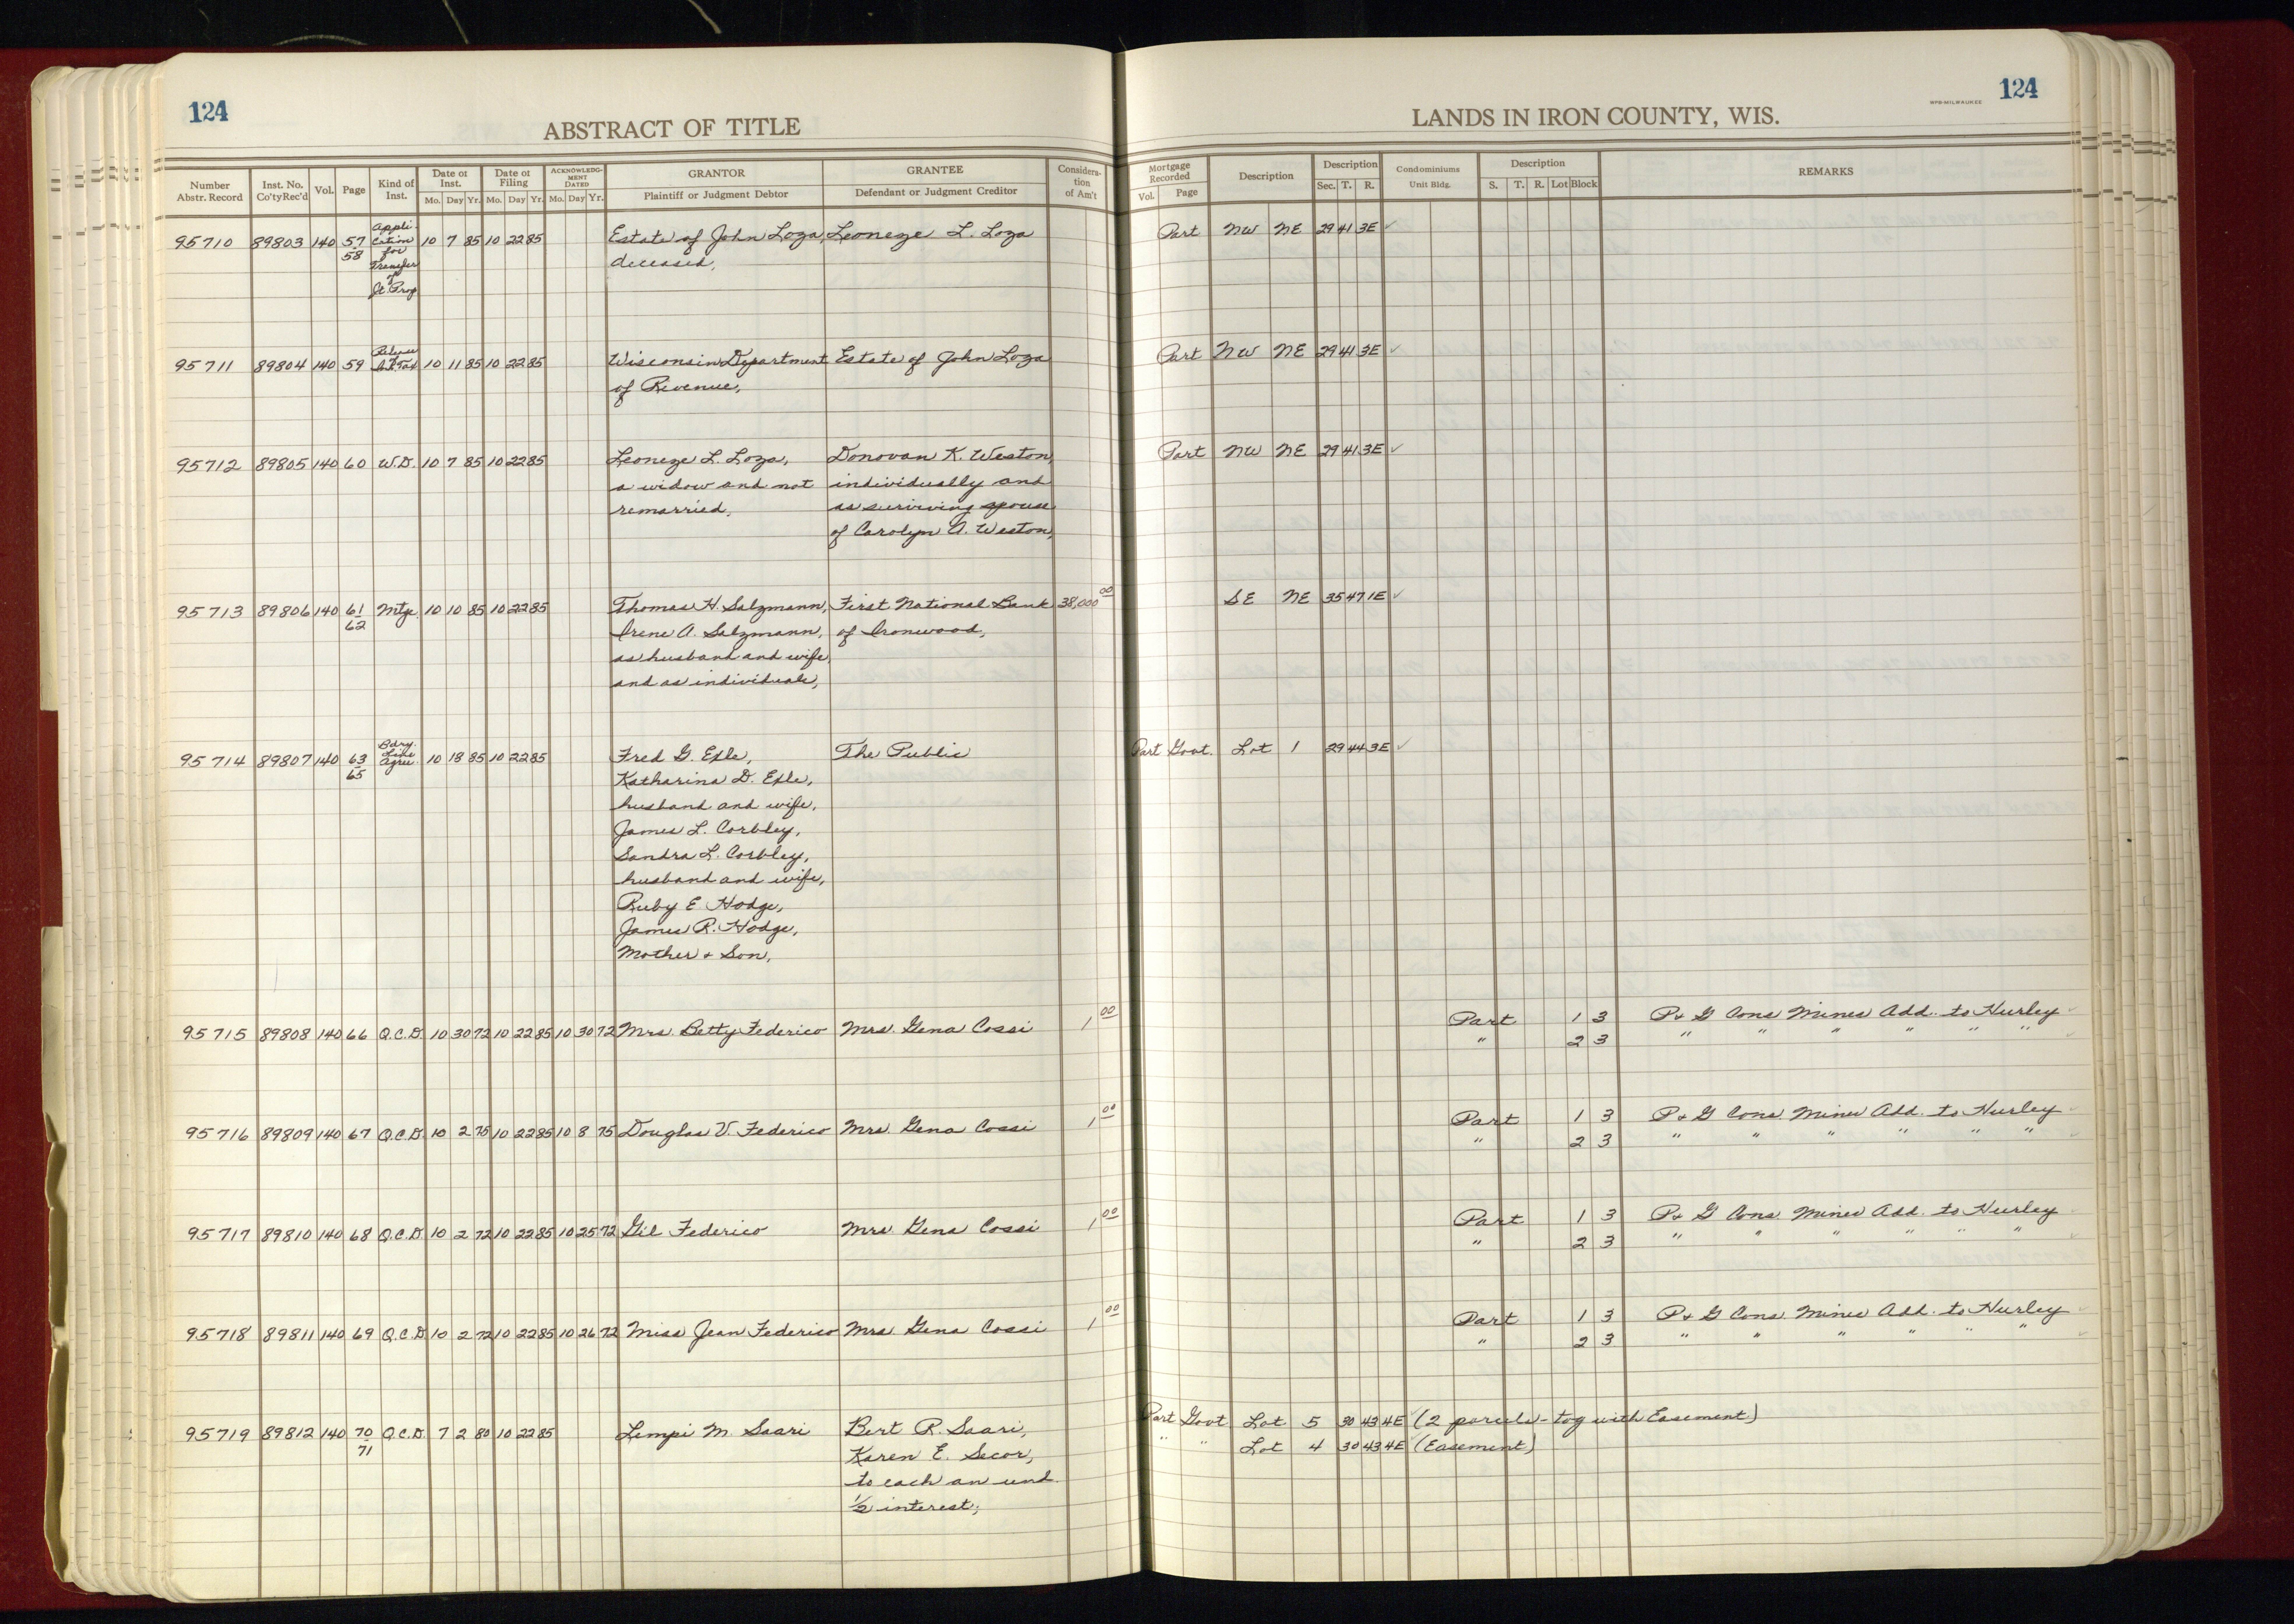 124
ABSTRACT OF TITLE
LANDS IN IRON COUNTY, WIS.
WPB-MILWAUKEE
124
Number Abstr. Record
Inst. No. Co'ty Rec'd
Vol.
Page
Kind of Inst.
Date of Inst.
Mo. Day Yr.
Date of Filing
Mo. Day Yr.
ACKNOWLEDGMENT DATED
Mo. Day Yr.
GRANTOR
Plaintiff or Judgment Debtor
GRANTEE
Defendant or Judgment Creditor
Consideration of Am't
Mortgage Recorded
Vol. Page
Description
Description
Sec. T. R.
Condominiums
Unit Bldg.
Description
S. T. R. Lot Block
REMARKS
95710 89803 140 57/58 Application for Transfer of Jt. Prop 10 7 85 10 22 85 Estate of John Loza, Leoneze L. Loza Part NW NE 29 41 3E ✓
deceased,
95711 89804 140 59 Release 10 11 85 10 22 85 Wisconsin Department Estate of John Loza Part NW NE 29 41 3E ✓
of Revenue,
95712 89805 140 60 W.D. 10 7 85 10 22 85 Leoneze L. Loza, Donovan K. Weston, Part NW NE 29 41 3E ✓
a widow and not individually and
remarried, as surviving spouse
of Carolyn A. Weston,
95713 89806 140 61/62 Mtge. 10 10 85 10 22 85 Thomas H. Salzmann, First National Bank 38,000 00 SE NE 35 47 1E ✓
Irene A. Salzmann, of Ironwood,
as husband and wife,
and as individuals,
95714 89807 140 63/65 Bdry. Line Agree 10 18 85 10 22 85 Fred G. Exle, The Public Part Govt. Lot 1 29 44 3E ✓
Katharina D. Exle,
husband and wife,
James L. Corbley,
Sandra L. Corbley,
husband and wife,
Ruby E. Hodge,
James R. Hodge,
Mother & Son,
95715 89808 140 66 Q.C.D. 10 30 72 10 22 85 10 30 72 Mrs. Betty Federico Mrs. Gena Cossi 1 00 Part 1 3 P & G Cons Mines Add. to Hurley ✓
" 2 3 " " " " " " ✓
95716 89809 140 67 Q.C.D. 10 2 75 10 22 85 10 8 75 Douglas V. Federico Mrs. Gena Cossi 1 00 Part 1 3 P & G Cons. Mines Add. to Hurley ✓
" 2 3 " " " " " " ✓
95717 89810 140 68 Q.C.D. 10 2 72 10 22 85 10 25 72 Gil Federico Mrs Gena Cossi 1 00 Part 1 3 P & G Cons. Mines Add. to Hurley ✓
" 2 3 " " " " " " ✓
95718 89811 140 69 Q.C.D. 10 2 72 10 22 85 10 26 72 Miss Jean Federico Mrs Gena Cossi 1 00 Part 1 3 P & G Cons. Mines Add. to Hurley ✓
" 2 3 " " " " " " ✓
95719 89812 140 70/71 Q.C.D. 7 2 80 10 22 85 Lempi M. Saari Bert R. Saari, Part Govt Lot 5 30 43 4E (2 parcels - tog with Easement)
Karen E. Secor, " " Lot 4 30 43 4E (Easement)
to each an und.
1/2 interest,